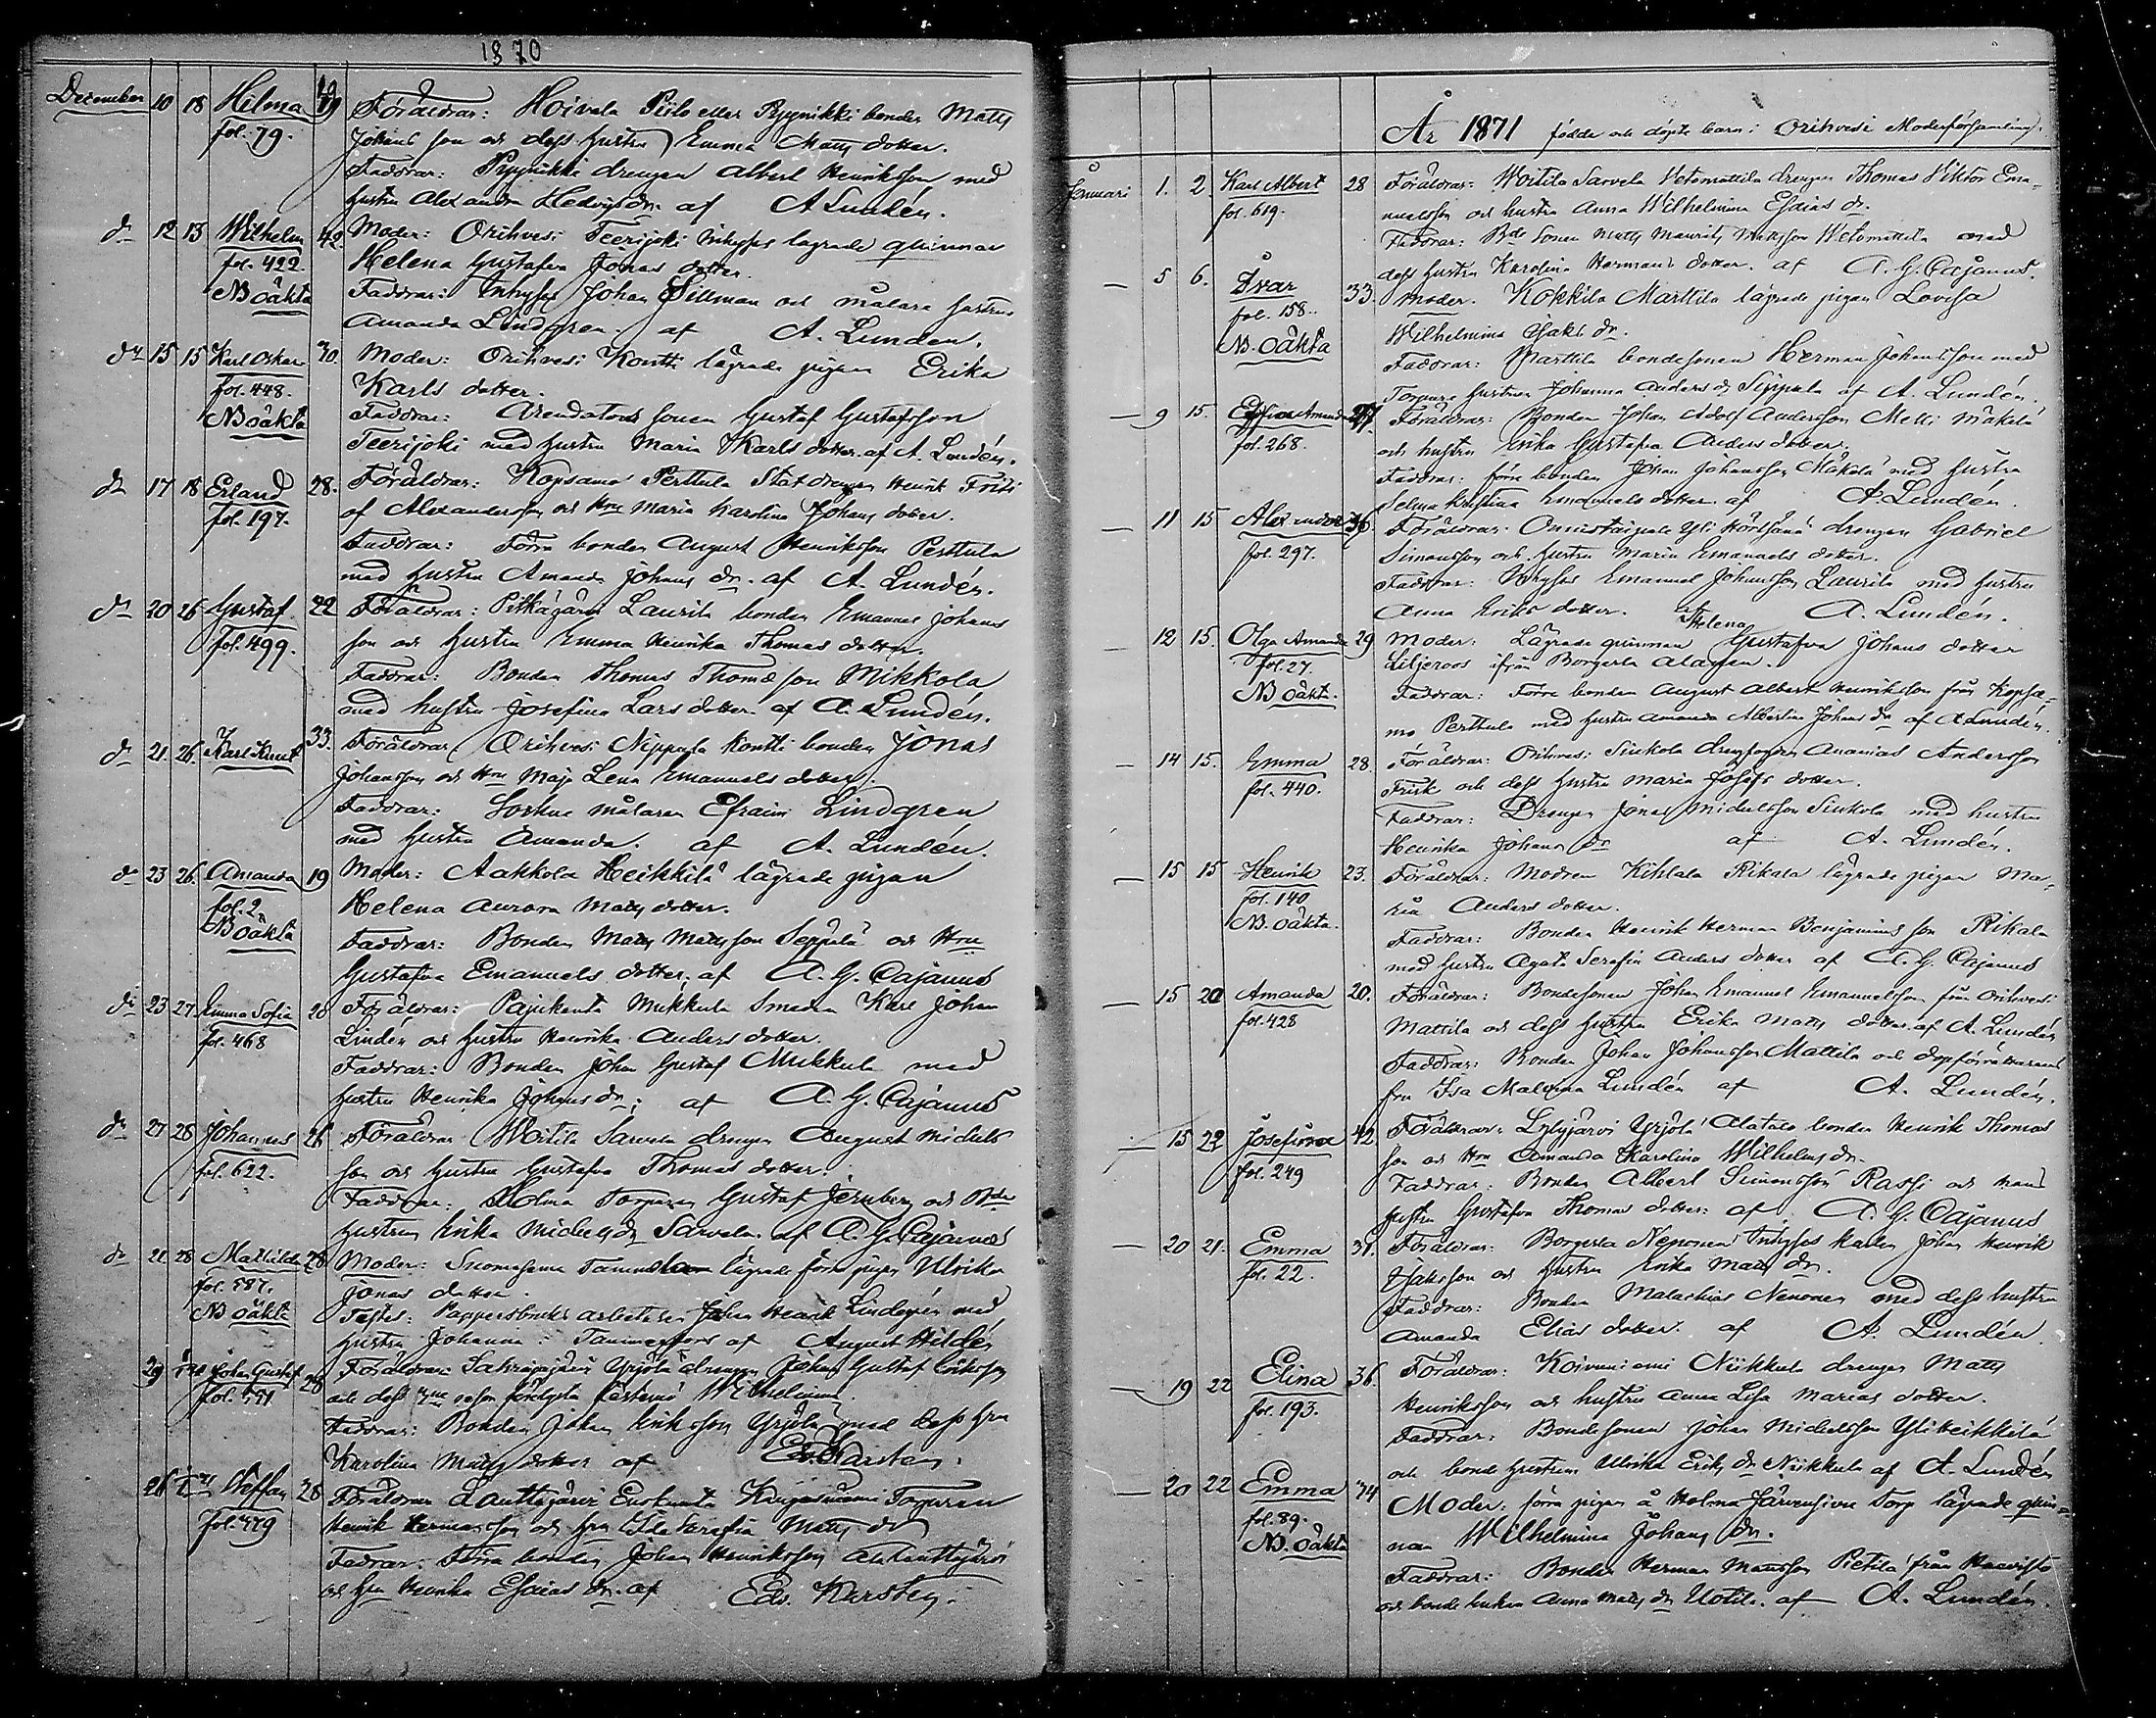 1870
December 10 18 Helma 19 Föräldrar: Hoivala Piilo eller Pyynikki bonden Matts
fol. 79. Johans son och dess hustru Emma Matts dotter.
Faddrar: Pyynikki drengen Albert Henriksson med
hustru Alexandra Hedvigs dr. af A Lundén.
dr 12 13 Wilhelm 42 Moder: Orihvesi Teerijoki inhyses lägrade qvinnan
fol. 422. Helena Gustafva Jonas dotter.
NB oäkta Faddrar: Inhyses Johan Sillman och målare hustrun
Amanda Lindgren. af A. Lundén.
dr 15 15 Karl Oskar 30. Moder: Orihvesi Kontti lägrade pigan Erika
fol. 448. Karls dotter.
NB oäkta Faddrar: Arendators sonen Gustaf Gustafsson
Teerijoki med hustru Maria Karls dotter. af A. Lundén.
dr 17 18 Erland 28. Föräldrar: Kopsamo Perttula Statdrengen Henrik Fritiof
fol. 197. Alexandersson och Hru Maria Karolina Johans dotter.
Faddrar: Förra bonden August Henriksson Perttula
med hustru Amanda Johans dr. af A. Lundén.
dr 20 26 Gustaf 22 Föräldrar: Pitkäjärvi Laurila bonden Emanuel Johans
fol. 499. son och hustru Emma Henrika Thomas dotter.
Faddrar: Bonden Thomas Thomæ son Mikkola
med hustru Josefina Lars dotter. af A. Lundén.
dr 21. 26. Karl Knut 33. Föräldrar: Orihvesi Nippula Kontti bonden Jonas
Johansson och Hru Maja Lena Emanuels dotter.
Faddrar: Sockne målaren Efraim Lindgren
med hustru Amanda. af A. Lundén.
dr 23 26. Amanda 19 Moder: Aakkola Heikkilä lägrade pigan
fol. 2. Helena Aurora Matts dotter.
NB oäkta Faddrar: Bonden Matts Mattsson Seppälä och Hru
Gustafva Emanuels dotter; af A. G. Cajanus
dr 23 27 Emma Sofia 20 Föräldrar: Pajukanta Mukkula Smeden Karl Johan
fol. 468 Lindén och hustru Henrika Anders dotter.
Faddrar: Bonden Johan Gustaf Mukkula med
hustru Henrika Johans dr; af A. G. Cajanus
dr 27 28 Johannes 26 Föräldrar: Woitila Sarvela drengen August Michels
fol. 622. son och hustru Gustafva Thomas dotter.
Faddrar: Holma Torparen Gustaf Jernberg och Bde
hustrun Erika Michels dr Sarvela. af A. G. Cajanus
dr 21 28 Mathilda 28 Moder: Suomasema lägrade förra pigan Ulrika
fol. 587. Jonas dotter.
NB oäkta Testes: Pappersbruks arbetaren Johan Henrik Lindgren med
hustru Johanna i Tammerfors af August Hildén
29 Johan Gustaf 28 Föräldrar: Yrjölä drengen Johan Gustaf Eriksson
och dess Wilhelmina
Faddrar: Bonden Johan Eriksson Yrjölä med dess hru
Karolina Matts dotter af Ed. Karsten.
26 Steffan 28 Föräldrar Lauttajärvi Torparen
fol. 779 Henrik Hermansson och hru Ida Serafia Matts dr
Fadrar: Förra bonden Johan Henriksson
och hru Henrika Esaias dr. af Edv. Karsten.
År 1871 födde och döpte barn i Orihvesi Moderförsamling.
Januari 1. 2 Karl Albert 28 Föräldrar: Woitila Sarvela Vetomattila drengen Thomas Viktor Ema-
fol. 619. nuelsson och hustru Anna Wilhelmina Esaias dr.
Faddrar: Bde Sonen Matts Maurits Mattsson Wetomattila med
dess hustru Karolina Hermans dotter. af A. G. Cajanus.
— 5 6. Ivar 33. Moder. Kokkila Marttila lägrade pigan Lovisa
fol. 158. Wilhelmina Isaks dr.
NB. oäkta Faddrar: Marttila bondesonen Herman Johansson med
Torpare hustrun Johanna Anders dr Seppula af A. Lundén.
— 9 15. Amanda 27. Föräldrar: Bonden Johan Adolf Andersson Melli Mäkelä
fol. 268. och hustru Erika Gustafva Anders dotter.
Faddrar: förra bonden Johan Johansson Mäkelä med hustru
Selma Kristina Emanuels dotter. af A. Lundén.
— 11 15 Alexander 36 Föräldrar: Onnistaipale Yli Hörtsänä drengen Gabriel
fol. 297. Simonsson och hustru Maria Emanuels dotter.
Faddrar: Inhyses Emanuel Johansson Laurila med hustru
Anna Eriks dotter. af A. Lundén.
— 12 15. Olga Amanda 29 Moder: Lägrade qvinnan Helena Gustafva Johans dotter
fol. 27. Liljeroos ifrån Borgerla Alasjen.
NB oäkta. Faddrar: Förre bonden August Albert Henriksson från Kopsa-
mo Perttula med hustru Amanda Albertina Johans dr af A Lundén.
— 14 15. Emma 28. Föräldrar: Orihvesi Sinkola drengfogden Ananias Andersson
fol. 440. Frisk och dess hustru Maria Josefs dotter.
Faddrar: Drengen Jonas Michelsson Sinkola med hustru
Henrika Johans dr af A. Lundén.
— 15 15 Henrik 23. Föräldrar: Modren Kihlala Rikala lägrade pigan Ma-
fol. 140 ria Anders dotter.
NB. oäkta. Faddrar: Bonden Henrik Herman Benjamins son Rikala
med hustru Agata Serafia Anders dotter af A. G. Cajanus
— 15 20 Amanda 20. Föräldrar: Bondesonen Johan Emanuel Emanuelsson från Orihvesi
fol. 428 Mattila och dess hustru Erika Matts dotter. af A. Lundén
Faddrar: Bonden Johan Johansson Mattila och dopförrättarens
fru Isa Malvina Lundén af A. Lundén.
— 15 22 Josefiina 42 Föräldrar: Lylyjärvi Yrjölä Alatalo bonden Henrik Thomas
fol. 249 son och Hru Amanda Karolina Wilhelms dr.
Faddrar: Bonden Albert Simonsson Rassi och hans
hustru Gustafva Thomas dotter: af A. G. Cajanus
— 20 21. Emma 31. Föräldrar: Borgerla Nenonen Inhyses karlen Johan Henrik
fol. 22. Isaksson och hustru Erika Matts dr.
Faddrar: Bonden Malachias Nenonen med dess hustru
Amanda Elias dotter. af A. Lundén.
— 19 22 Elina 36. Föräldrar: Koivuniemi Niikkula drengen Matts
fol. 193. Henriksson och hustru Anna Lisa Marias dotter.
Faddrar: Bondesonen Johan Michelsson Yliheikkilä
och bonde hustrun Ulrika Eriks dr Niikkula af A. Lundén
— 20 22 Emma 74 Moder: förra pigan å Holma Järvensivu Torp lägrade qvin-
fol. 89. nan Wilhelmina Johans dr.
NB. oäkta Faddrar: Bonden Herman Mattsson Pietilä från Haavisto
och bonde enkan Anna Matts dr Uotila. af A. Lundén.